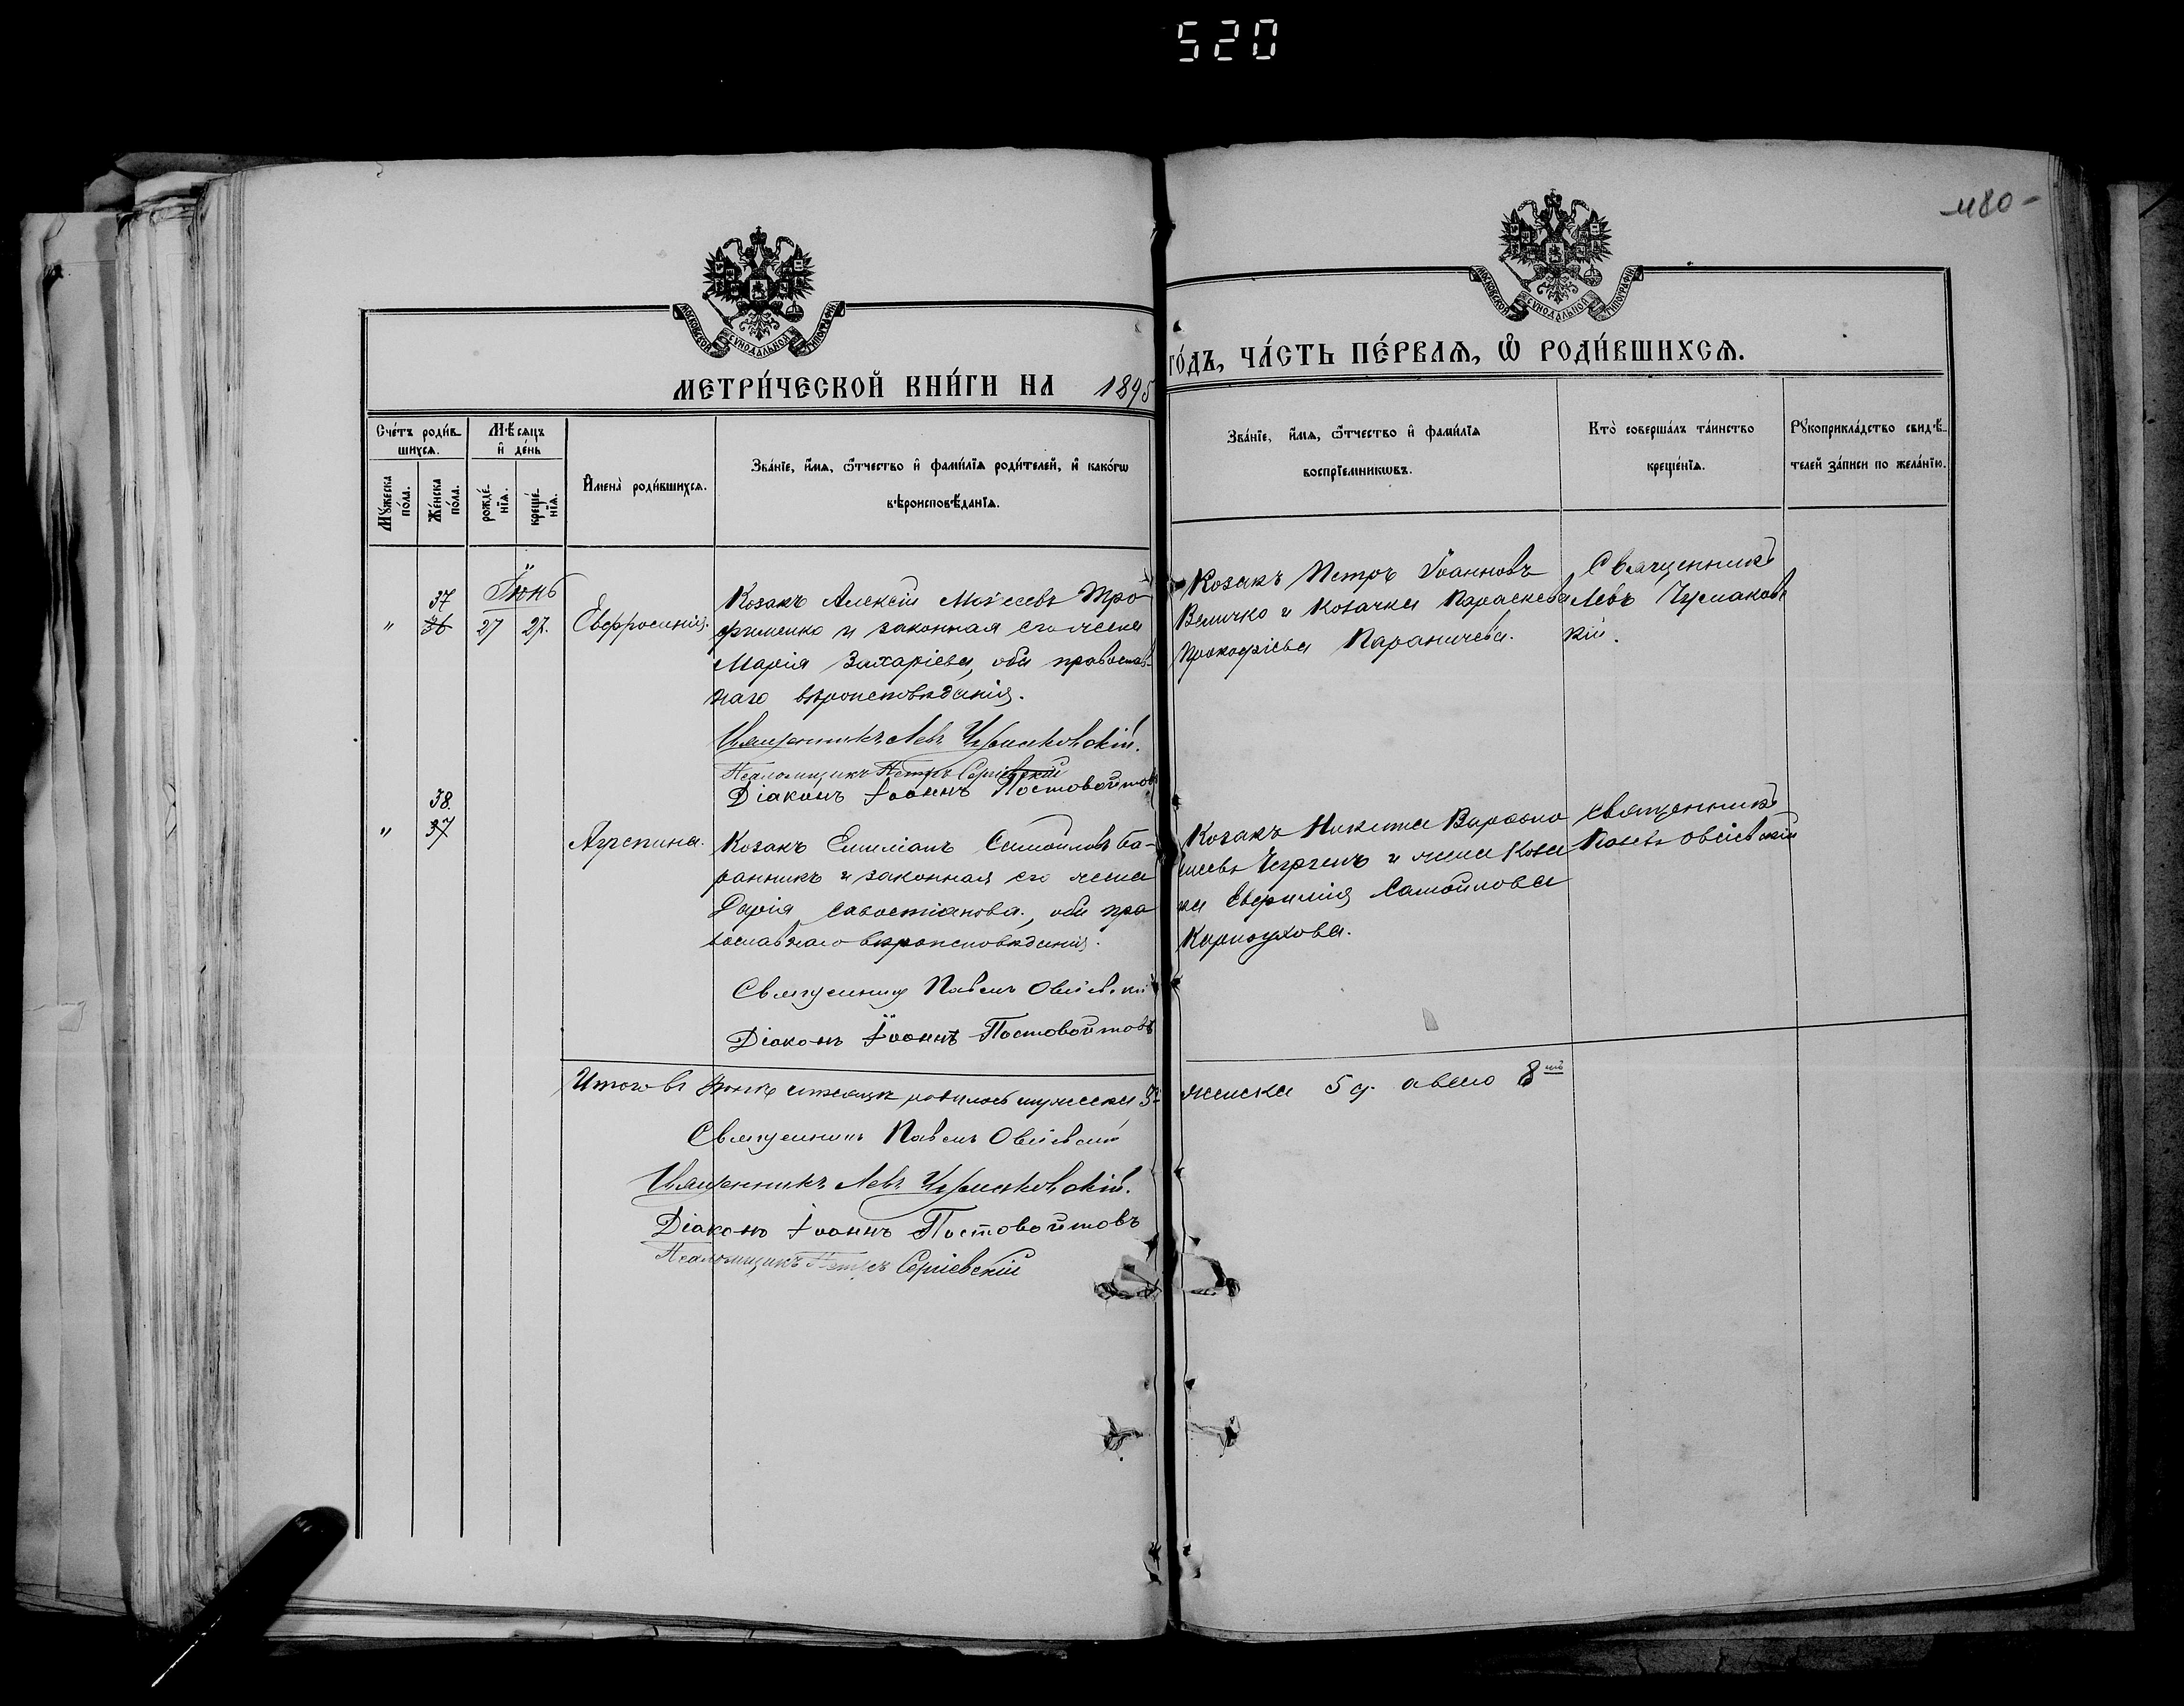 520
480
МОСКОВСКОЙ СѴНОДАЛЬНОЙ ТИПОГРАФІИ
МОСКОВСКОЙ СѴНОДАЛЬНОЙ ТИПОГРАФІИ
МЕТРИ́ЧЕСКОЙ КНИ́ГИ НА 1895
ГО́ДЪ, ЧА́СТЬ ПЕ́РВАЯ, Ѡ РОДИ́ВШИХСЯ.
Сче́тъ роди́в-
шихся.
Мꙋжеска по́ла.
Же́нска по́ла.
Мѣ́сяцъ
и де́нь
рожде́-
нїя.
креще́-
нїя.
Имена̀ роди́вшихся.
Зва́нїе, и́мя, ѻ́тчество и фами́лїя роди́телей, и како́гѡ
вѣроисповѣ́данїя.
Зва́нїе, и́мя, ѻ́тчество и фами́лїя
воспрїемникѡвъ.
Кто̀ соверша́лъ та́инство
креще́нїя.
Рꙋкоприкла́дство свидѣ́-
телей за́писи по жела́нїю.
Іюнь
37
" 36 27 27. Евфросинія.
Козакъ Алексій Моѵсеевъ Тро-
фименко и законная его жена
Марія Захаріева, оба православ-
наго вѣроисповѣданія.
Священникъ Левъ Чудмаковскій.
Псаломщикъ Петръ Сергіевскій
Діаконъ Іоаннъ Постовойтовъ
Козакъ Петръ Іоанновъ
Величко и козачка Параскева
Прокофіева Параничева.
Священникъ
Левъ
кій.
38.
" 37 Агрепина.
Козакъ Емиліанъ Самойловъ Ба-
ранникъ и законная его жена
Дарія Савостіанова, оба пра
вославнаго вѣроисповѣданія.
Священникъ Павелъ Овсіевскій
Діаконъ Іоаннъ Постовойтовъ
Козакъ Никита Варѳоло
меевъ и жена Коза
ка Евфимія Самойлова
Карпухова.
Священникъ
Павелъ Овсіевскій
Итого въ Іюнѣ мѣсяцѣ родилось мужеска 3
женска 5 а всего 8
Священникъ Павелъ Овсіевскій
Священникъ Левъ
Діаконъ Іоаннъ Постовойтовъ
Псаломщикъ Петръ Сергіевскій